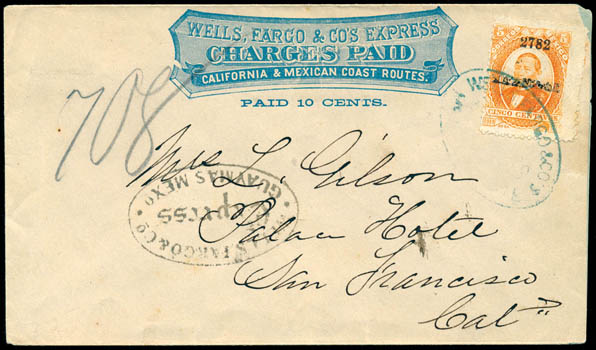 WELLS, FARGO & CO'S EXPRESS
CHARGES PAID
CALIFORNIA & MEXICAN COAST ROUTES.
PAID 10 CENTS.
2782
CINCO CENT
708
Mrs L. Gilson
Palace Hotel
San Francisco
Cal
FARGO & CO.
GUAYMAS MEXO.